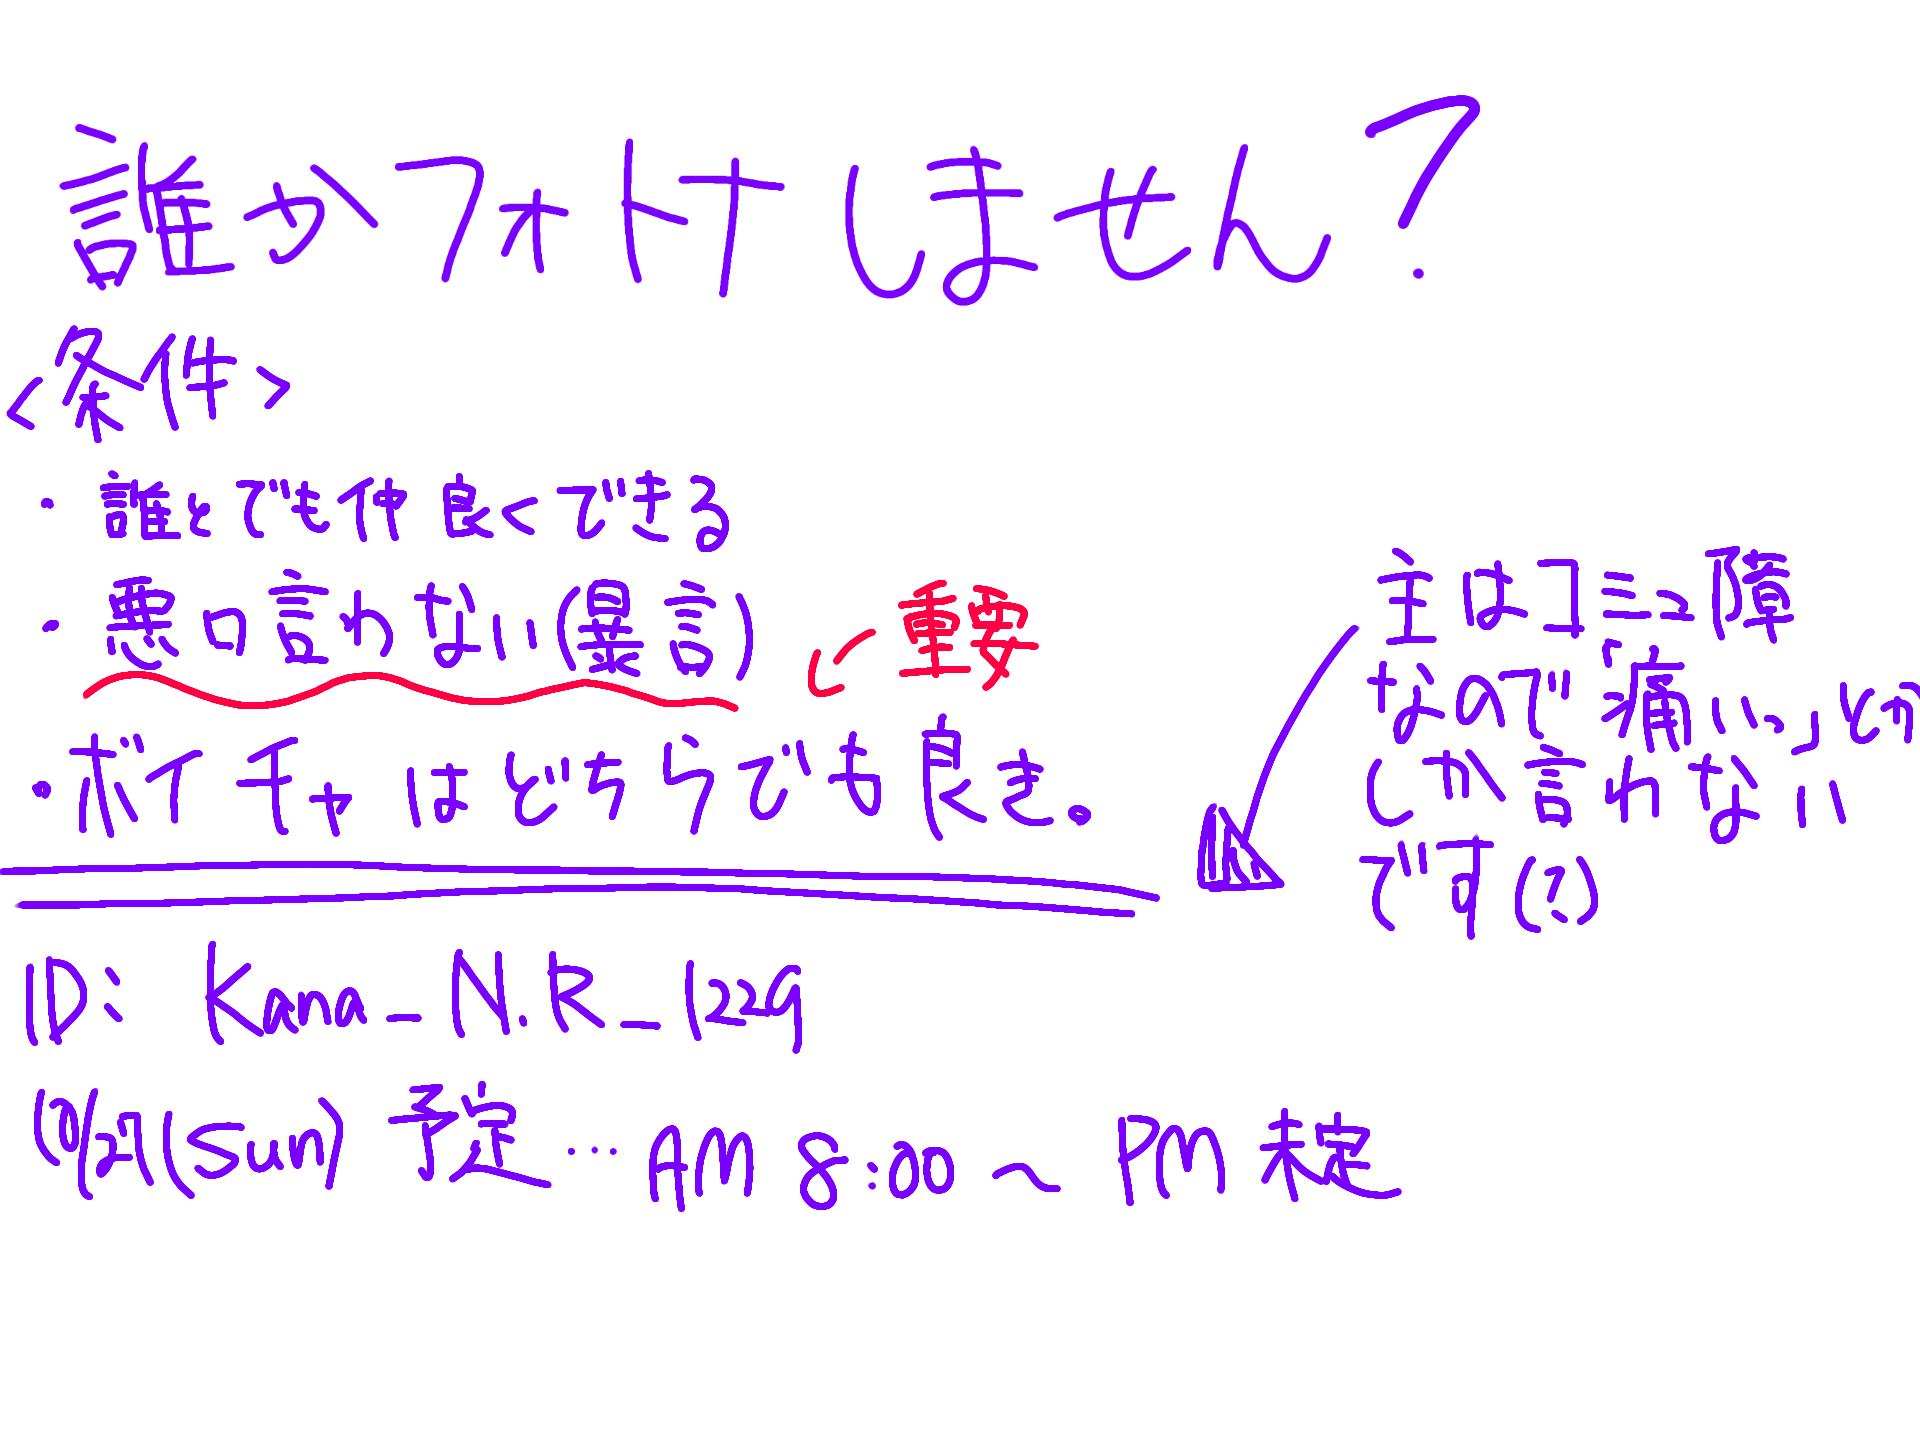 誰かフォトナしません?
<条件>
・誰とでも仲良くできる
・悪口言わない(暴言)
重要
・ボイチャはどちらでも良き。
主はコミュ障
なので「痛いっ」とか
しか言わない
です(?)
ID: Kana_N.R_1229
10/27(Sun) 予定… AM 8:00 ～ PM 未定